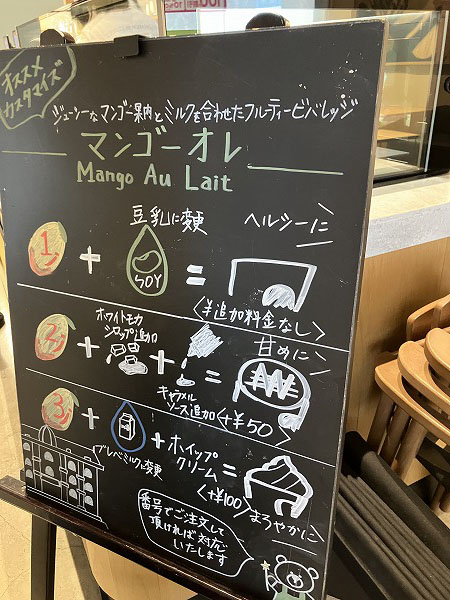 オススメ
カスタマイズ
ジューシーなマンゴー果肉とミルクを合わせたフルーティービバレッジ
マンゴーオレ
Mango Au Lait
豆乳に変更
ヘルシーに
1 + SOY =
<¥追加料金なし>
ホワイトモカ
シロップ追加
甘めに
2 + + =
キャラメル
ソース追加<+¥50>
3 + + ホイップ
クリーム =
ブレベミルク変更
<+¥100>まろやかに
番号でご注文して
頂ければ対応
いたします